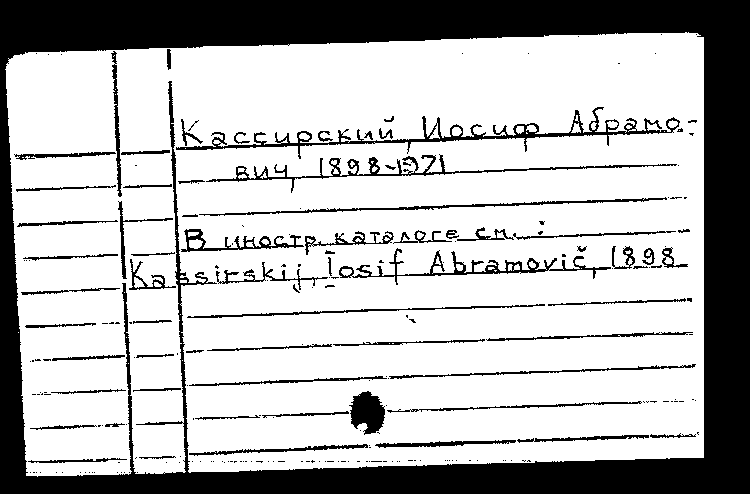 Кассирский, Иосиф Абрамо-
вич, 1898-1971
В иностр. каталоге см. :
Kassirskij, Iosif Abramovič, 1898